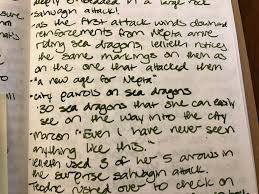 deeply embedded in a large rock
Sahuagin attack!
As the first attack winds down
reinforcements from Nepta arrive
riding sea dragons, lellieth notices
the same markings on them as
on the one that attacked them
"a new age for Nepta"
• city patrols on sea dragons
~30 sea dragons that she can easily
see on the way into the city
• Marcon "Even I have never seen
anything like this."
lellieth used 3 of her 5 arrows in
the surprise sahuagin attack.
rushed over to check on